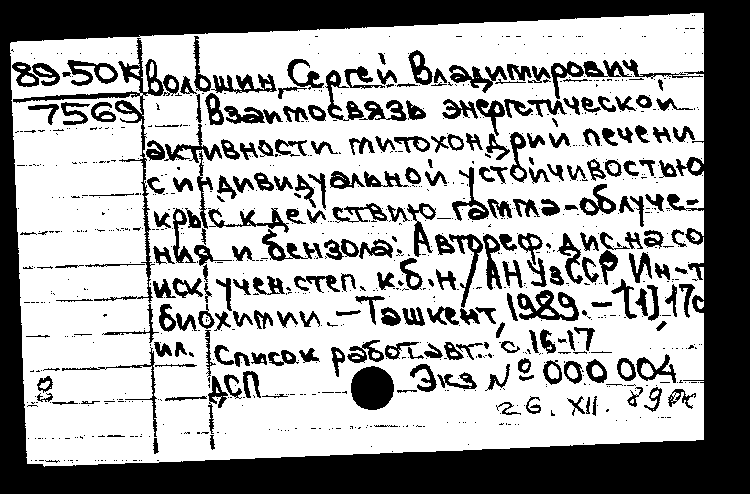 89-50к Волошин, Сергей Владимирович
7569 Взаимосвязь энергетической
активности митохондрий печени
с индивидуальной устойчивостью
крыс к действию гамма-облуче-
ния и бензола: Автореф. дис. на со
иск. учен. степ. к.б.н. / АН УзССР, Ин-т
биохимии. - Ташкент, 1989. - [1], 17с
ил. Список работ авт.: с. 16-17
ДСП Экз № 000 004
26. XII. 89